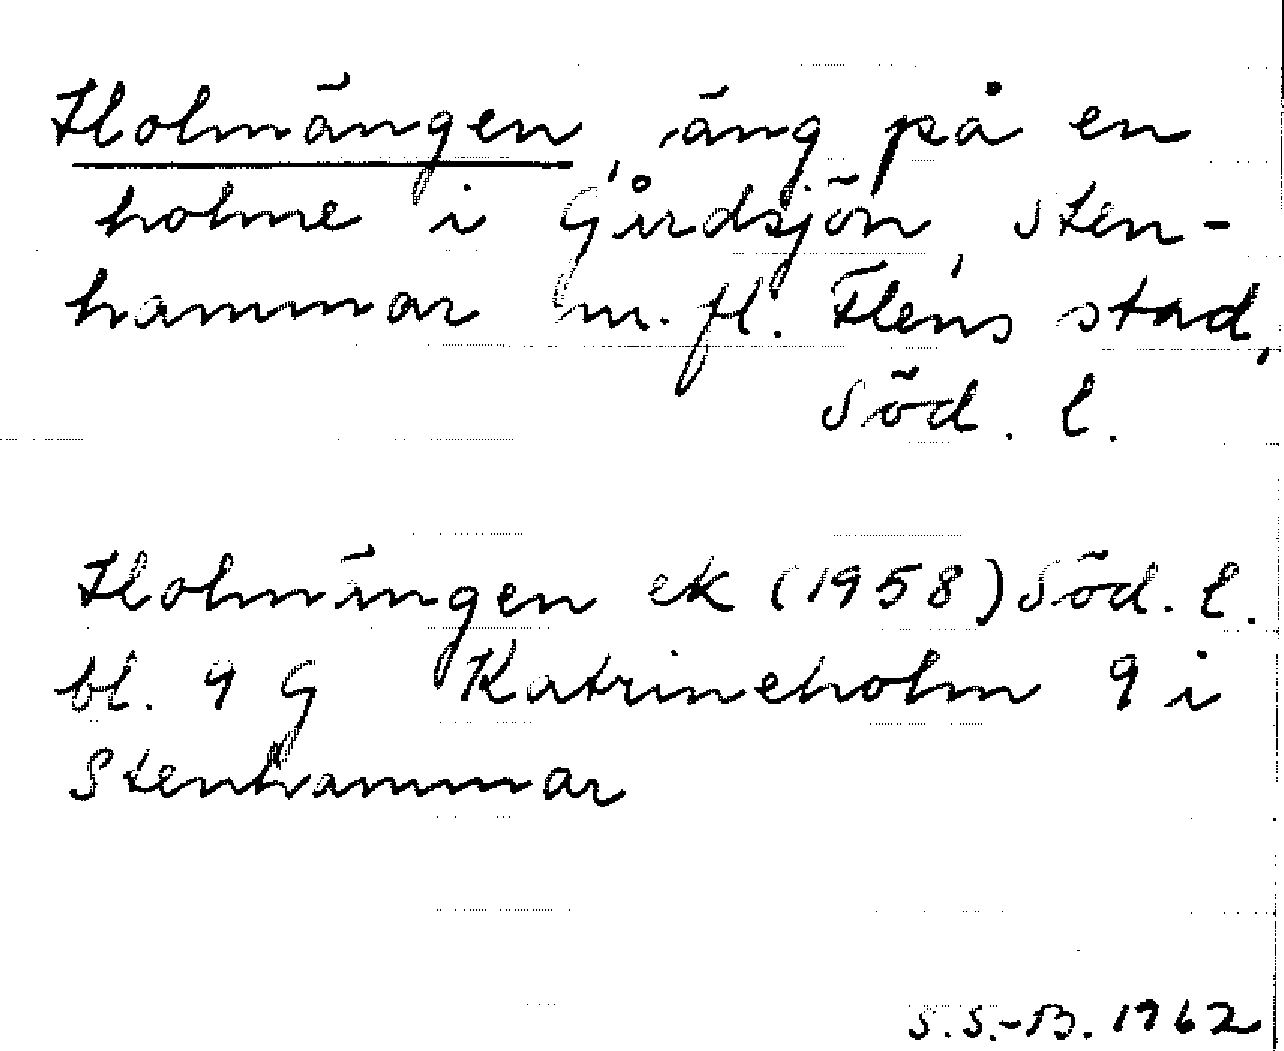 Holmängen, äng på en
holme i Gårdsjön, Sten-
hammar m. fl. Flens stad,
Söd. l.
Holmängen ek (1958) Söd. l.
bl. 9 G Katrineholm 9 i
Stenhammar
S. S.-B. 1962